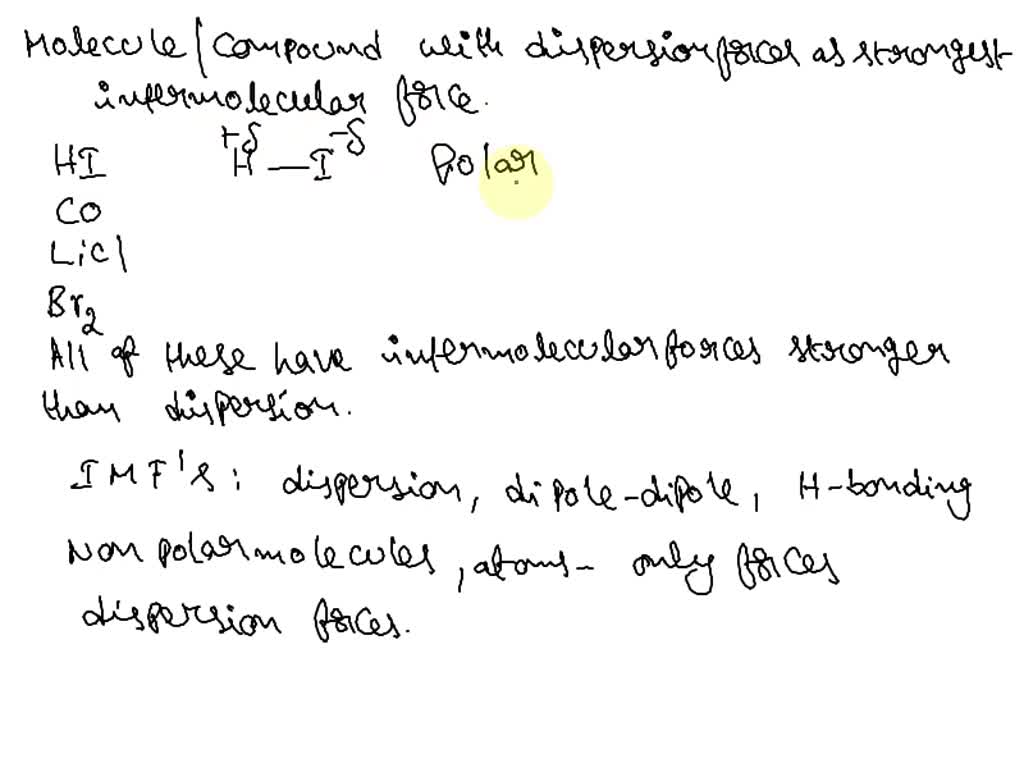 Molecule/Compound with dispersion forces as strongest
intermolecular force.
HI +δ H—I -δ Polar
CO
LiCl
Br2
All of these have intermolecular forces stronger
than dispersion.
IMF's: dispersion, dipole-dipole, H-bonding
Non polar molecules, atoms- only forces
dispersion forces.